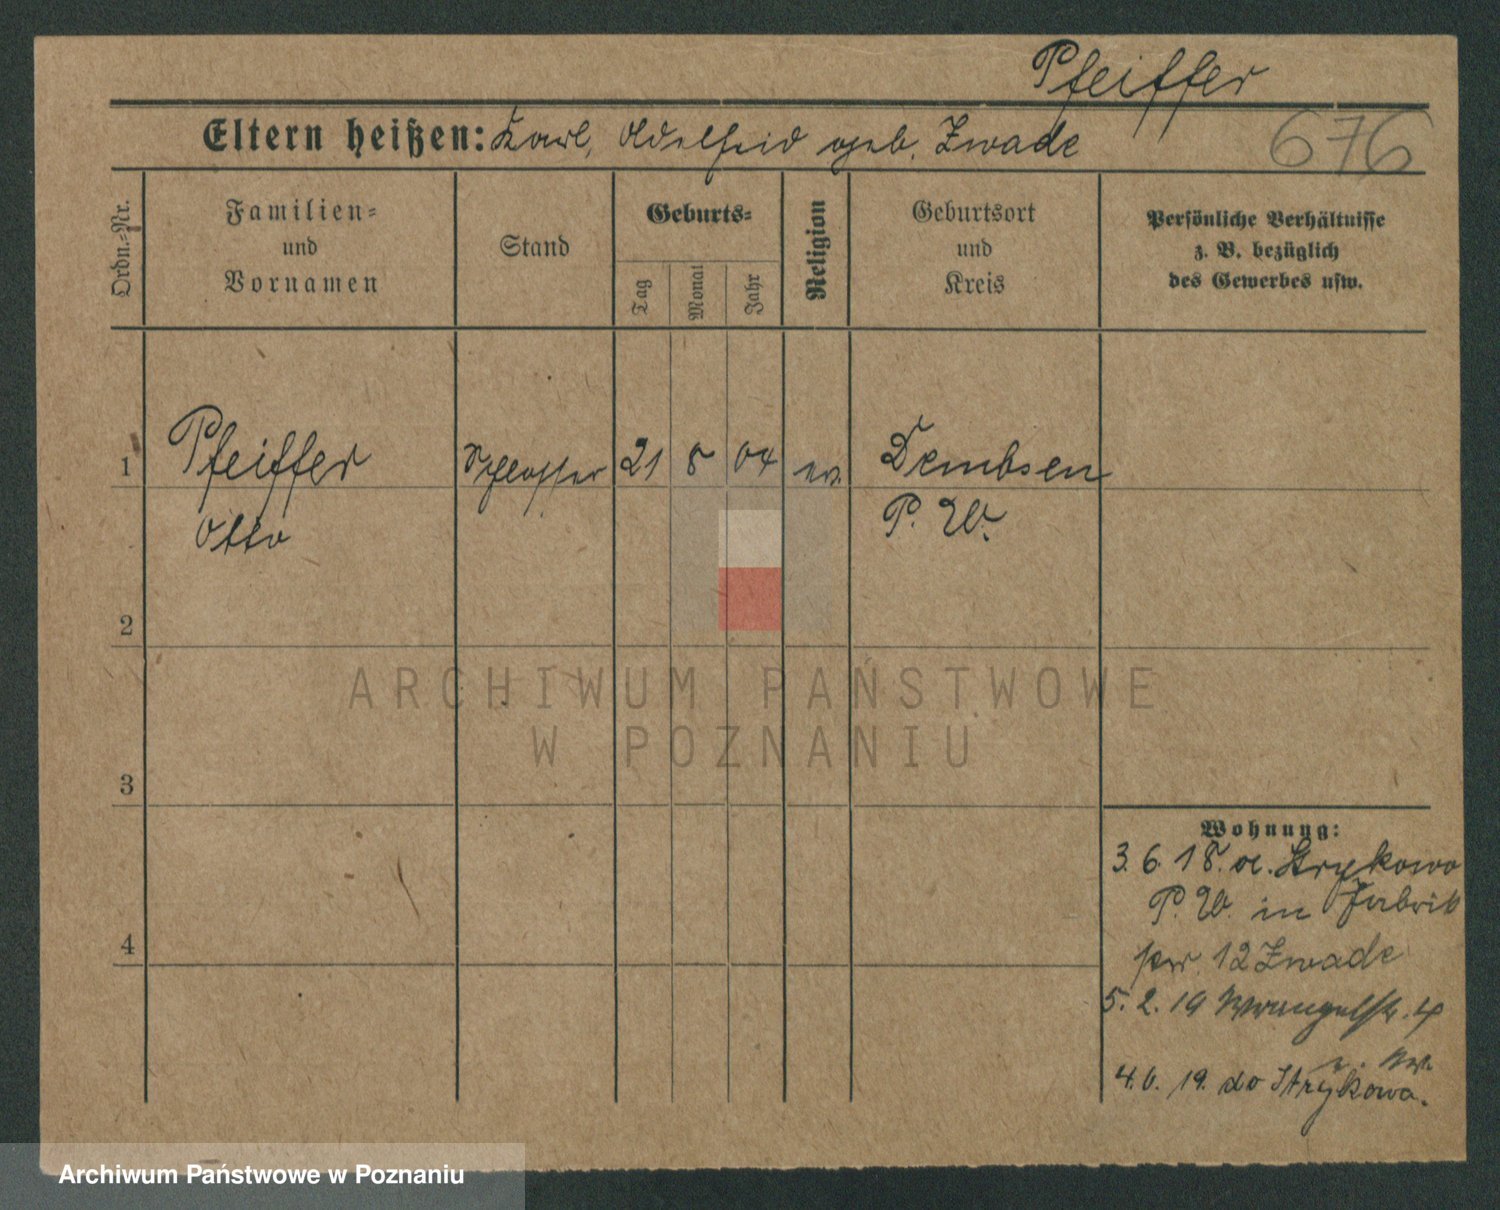 Pfeiffer
Eltern heißen: Karl, Adelheid geb. Zwade
676
Ordn.-Nr.
Familien-
und
Vornamen
Stand
Geburts-
Tag
Monat
Jahr
Religion
Geburtsort
und
Kreis
Persönliche Verhältnisse
z. B. bezüglich
des Gewerbes usw.
1
Pfeiffer
Otto
Schlosser
21
8
04
ev.
Dembsen
P. W.
2
3
4
Wohnung:
3. 6. 18. a. Strykowo
P. W. in Fabrik
12 Zwade
5. 2. 19 Wrangelstr. 4
4. 6. 19. do Strykowa.
ARCHIWUM PAŃSTWOWE
W POZNANIU
Archiwum Państwowe w Poznaniu